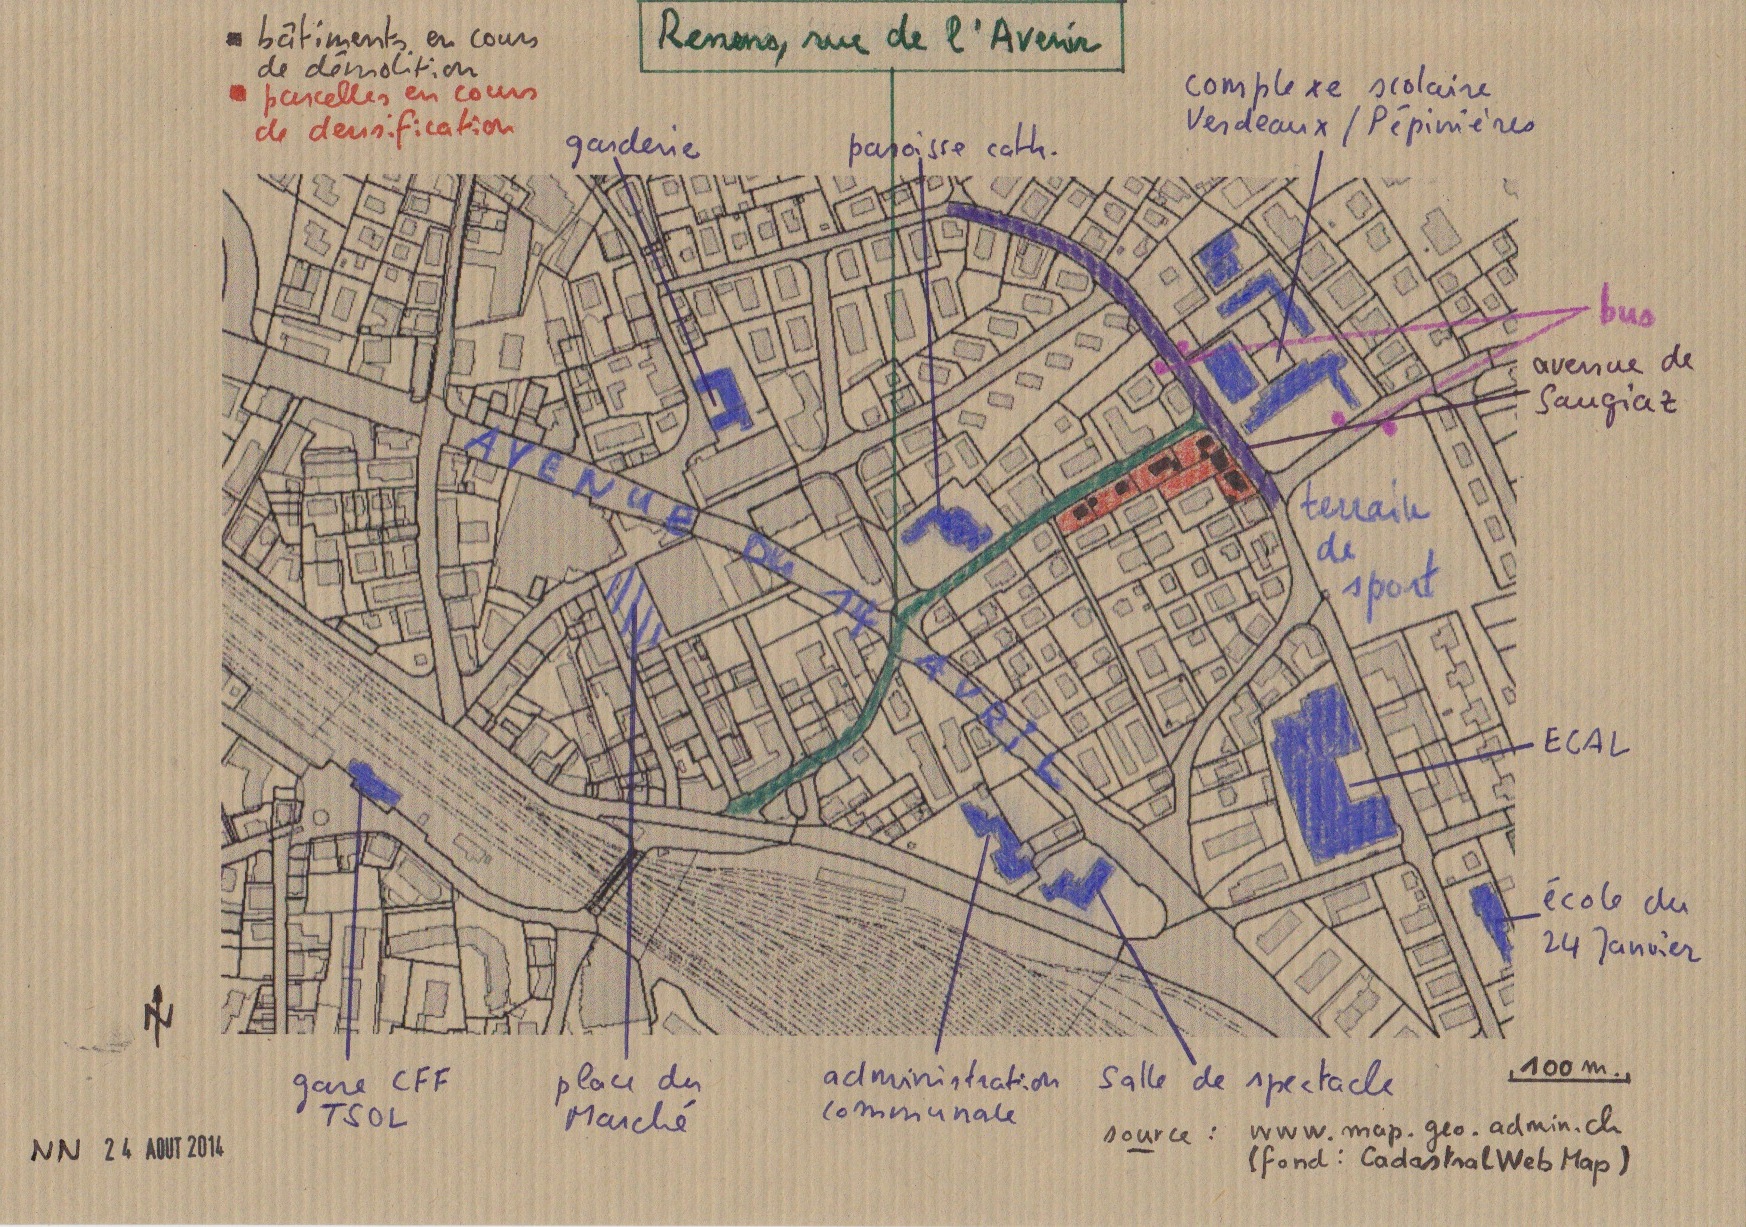 Renens, rue de l'Avenir
bâtiments en cours
de démolition
parcelles en cours
de densification
complexe scolaire
Verdeaux / Pépinières
garderie
paroisse cath.
bus
avenue de
Saugiaz
AVENUE DU 14 AVRIL
terrain
de
sport
ECAL
école du
24 Janvier
N
gare CFF
TSOL
place du
Marché
administration
communale
Salle de spectacle
100 m.
source : www.map.geo.admin.ch
(fond : CadastralWebMap)
NN 24 AOUT 2014